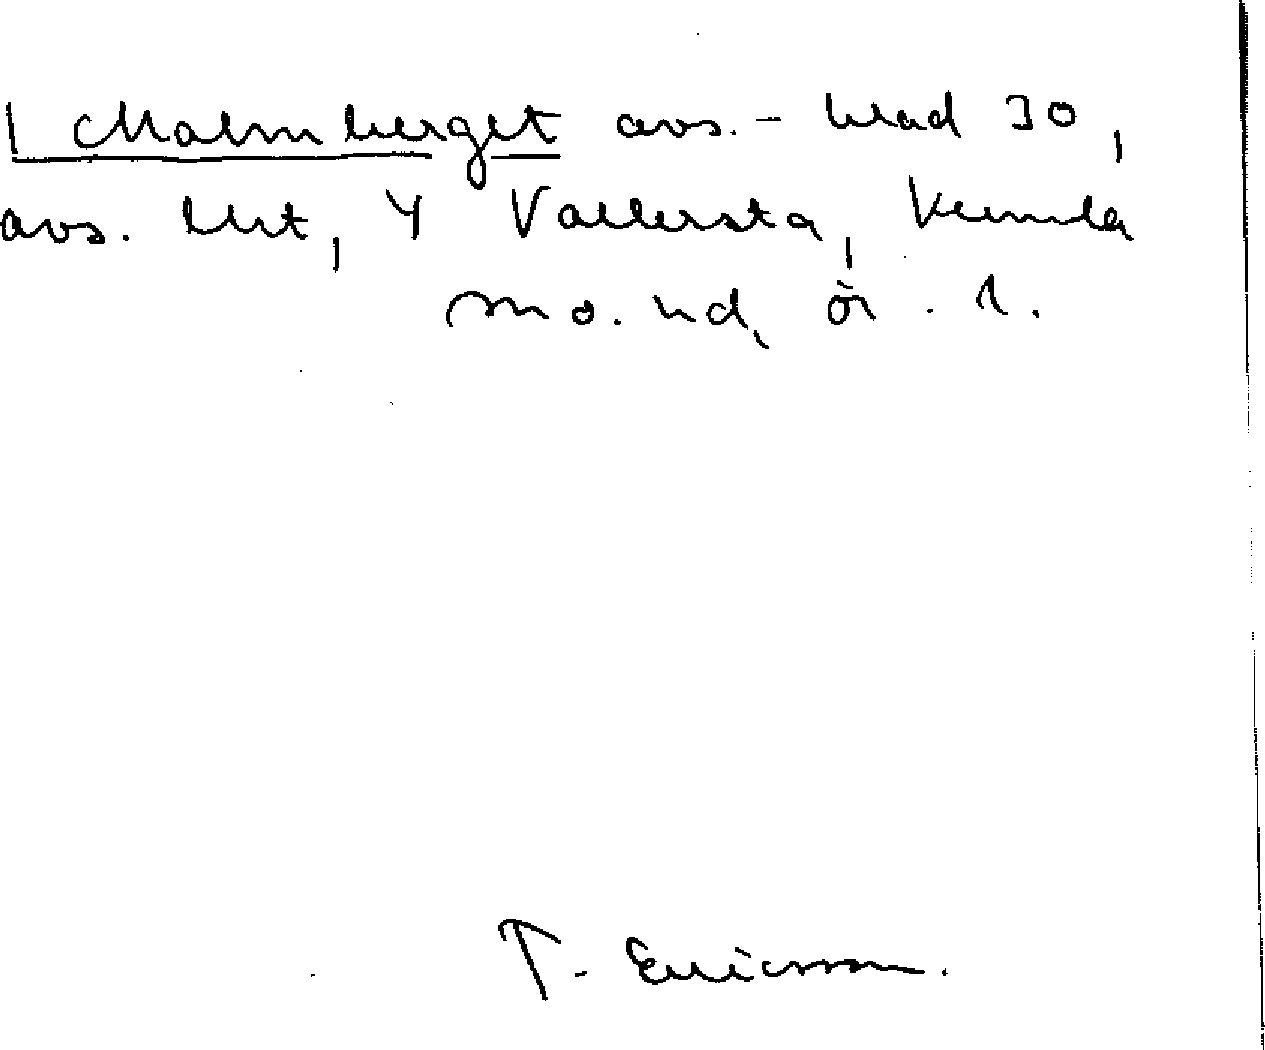 | Malmberget avs. - blad 30,
avs. till, 4 Vallersta, Kumla
sn o. hd, ör. l.
T. Ericsson.